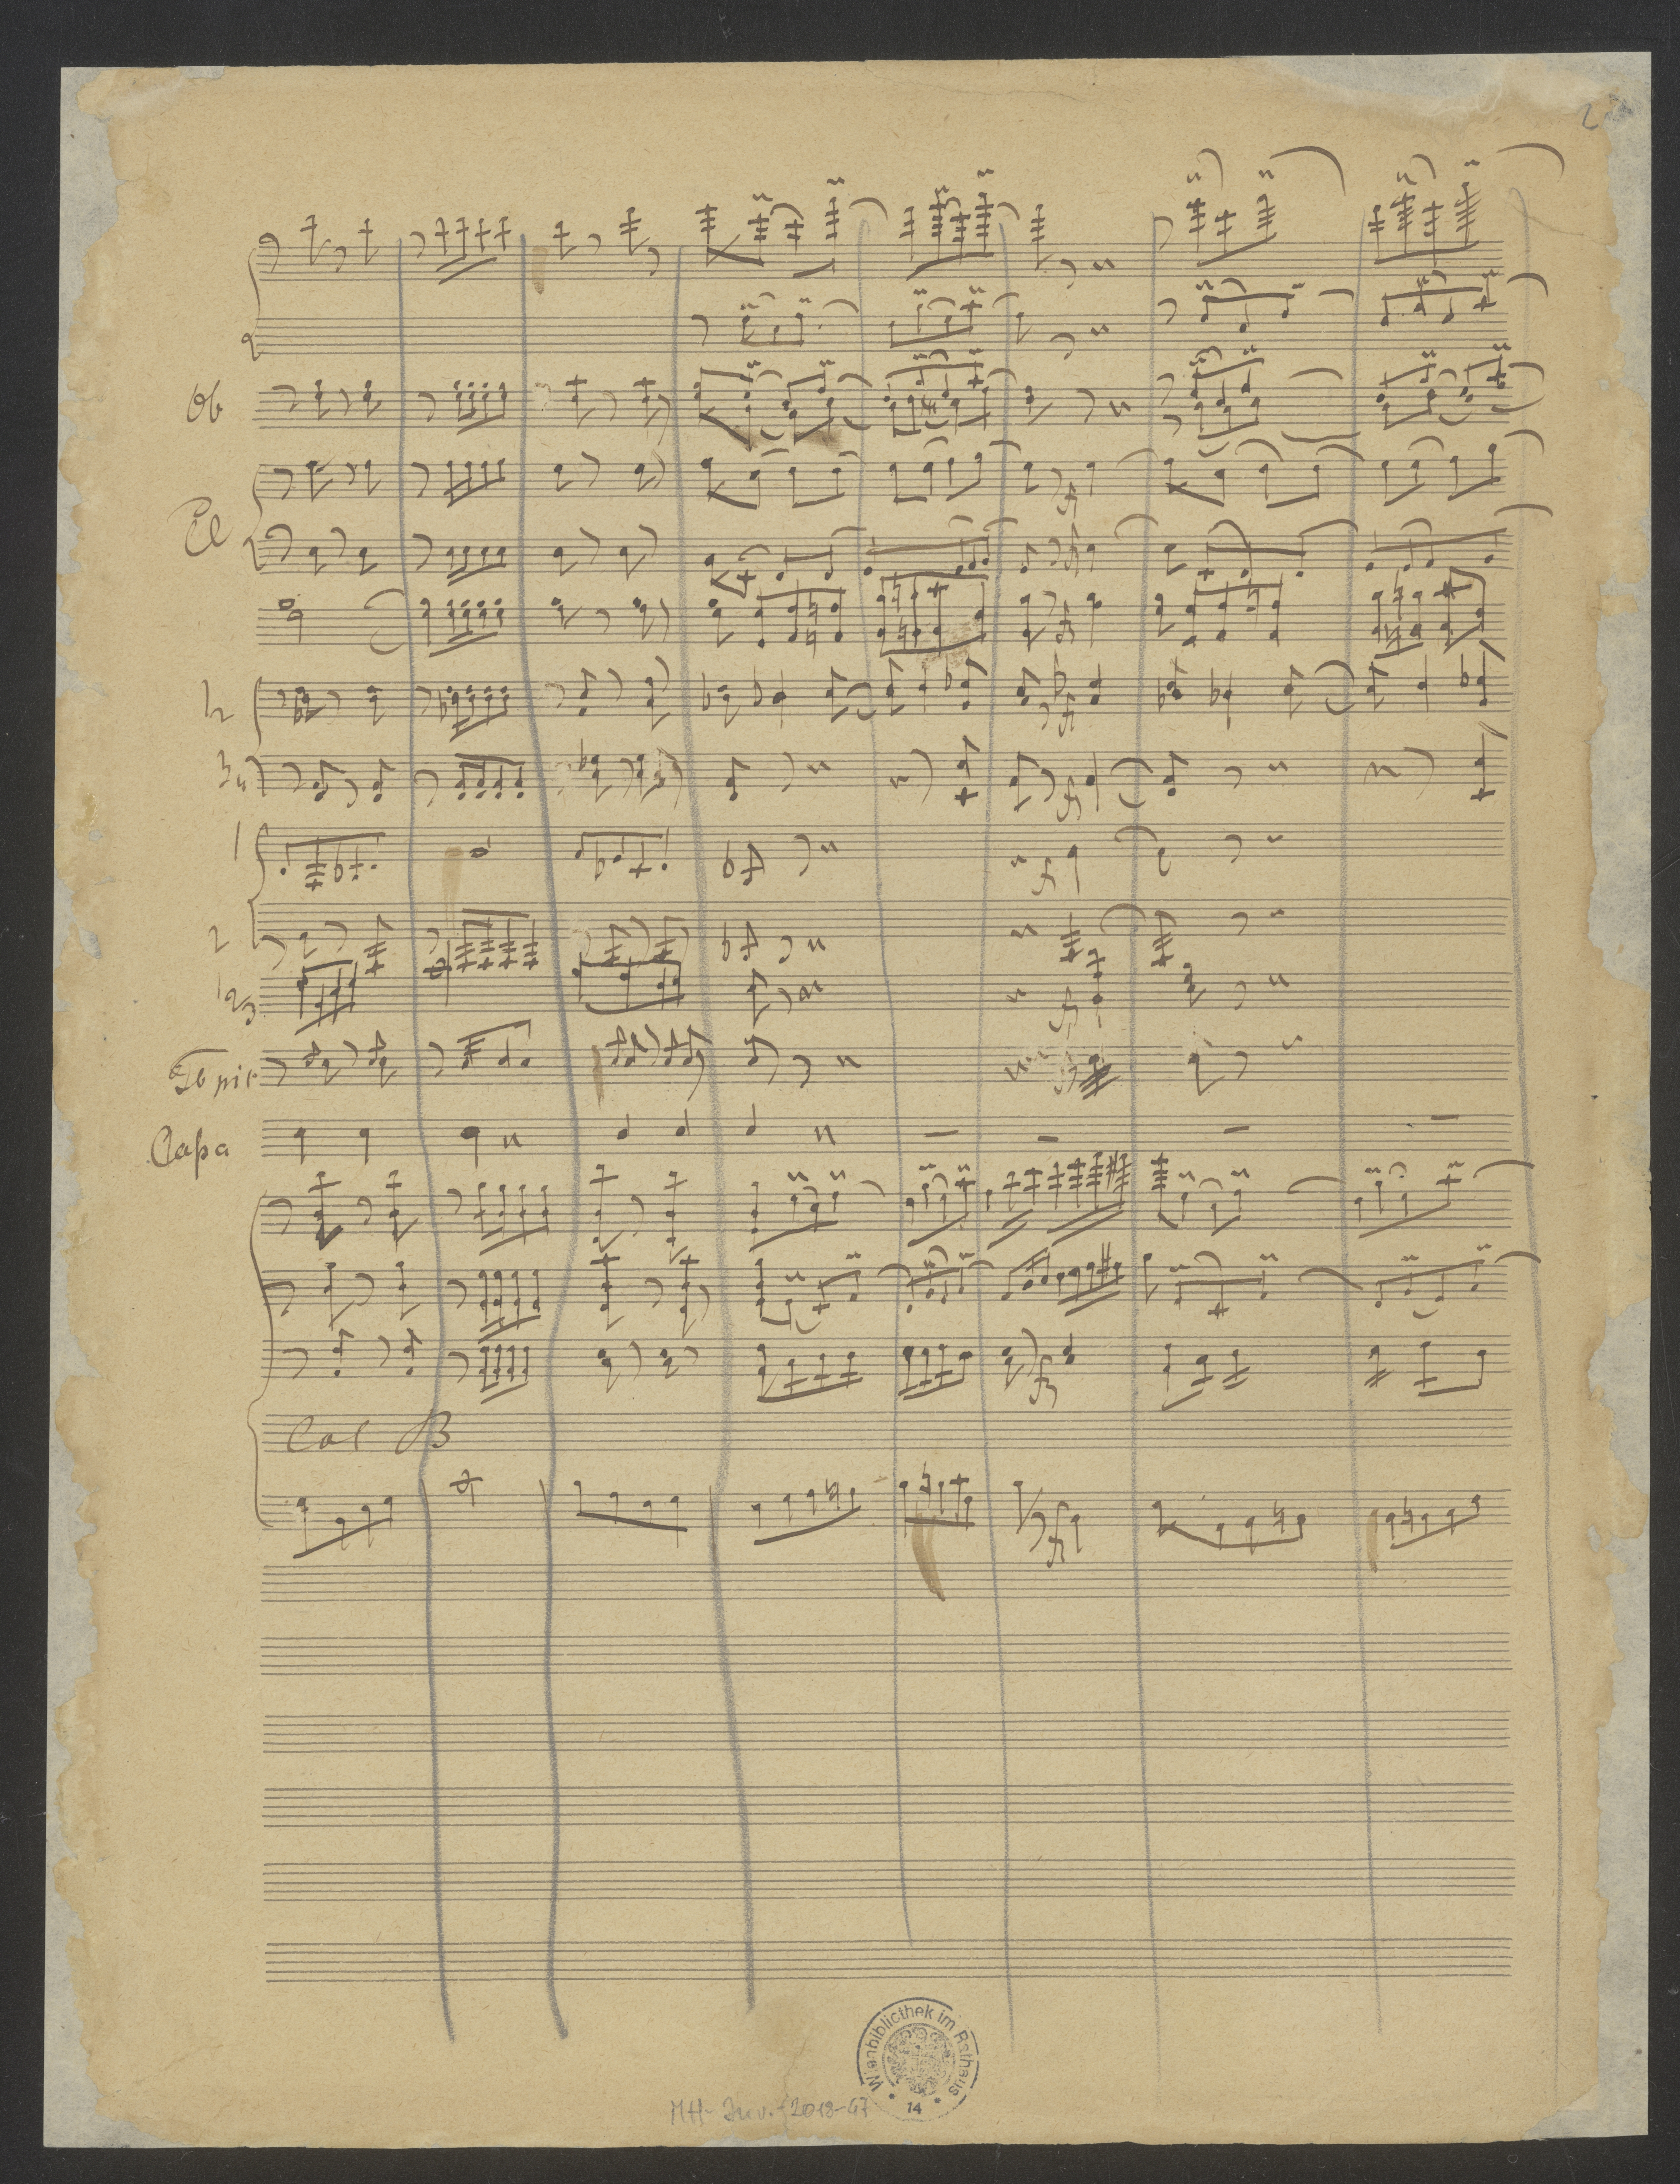 2
Ob
Cl
1 2
3 4
1
2
1 2 3
Timp
Cassa
Col B
Wienbibliothek im Rathaus
14
MH-Inv.-2018-47